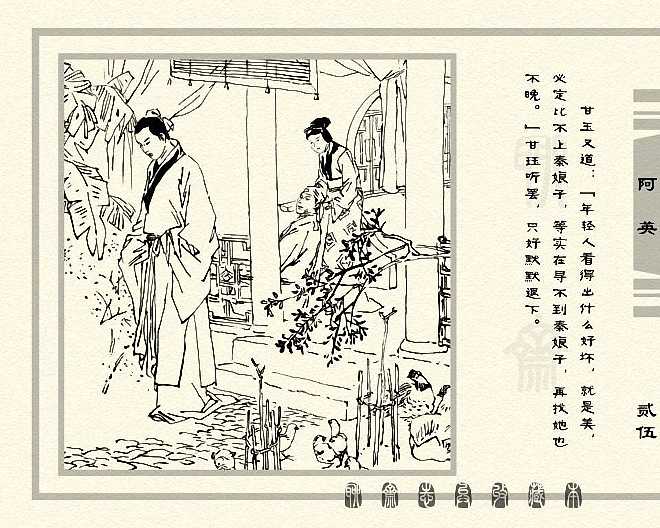 甘玉又道：「年轻人看得出什么好坏，就是美，
必定比不上秦娘子，等实在寻不到秦娘子，再找她也
不晚。」甘珏听罢，只好默默退下。
阿英
贰伍
聊斋志异收藏本